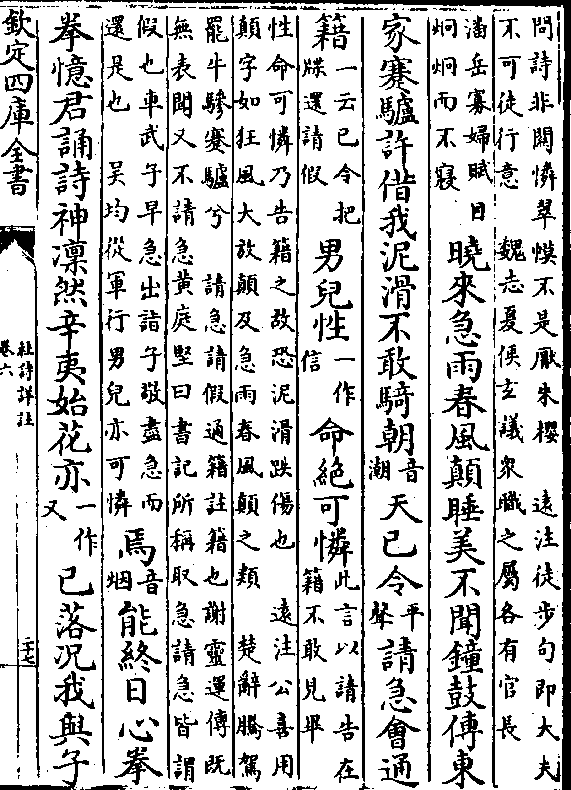 問詩非關憐翠幙不是厭朱櫻　遠注徒步句即大夫
不可徒行意　魏志夏侯玄議衆職之屬各有官長
潘岳寡婦賦曰
炯炯而不寢
曉來急雨春風顛睡美不聞鐘鼓傳東
家蹇驢許借我泥滑不敢騎朝音潮天已令平聲請急會通
籍一云已令把牒還請假男兒性一作信命絕可憐此言以請告在籍不敢見畢
性命可憐乃告籍之故恐泥滑跌傷也　遠注公喜用
顛字如狂風大放顛及急雨春風顛之類　楚辭騰駕
罷牛驂蹇驢兮　請急請假通籍註籍也謝靈運傳既
無表聞又不請急黄庭堅曰書記所稱取急請急皆謂
假也車武子早急出詣子敬盡急而
還是也　吴均從軍行男兒亦可憐
焉音烟能終日心拳
拳憶君誦詩神凜然辛夷始花亦一作又已落況我與子
欽定四庫全書
杜詩詳註
卷六
二十七